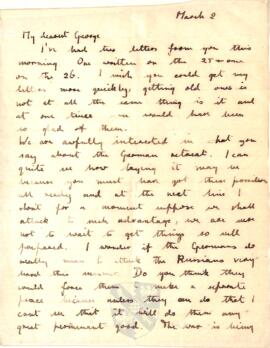 March 2
My dearest George
I've had two letters from you this
morning One written on the 25th & one
on the 26. I wish you could get my
letters more quickly, getting old ones is
not at all the same thing is it and
at one time you would have been
so glad of them.
We are awfully interested in what you
say about the German retreat. I can
quite see how laying it may be
because you must have got these positions
all ready and at the next line I
don't for a moment suppose we shall
attack to such advantage, we are sure
not to wait to get things so well
prepared. I wonder if the Germans do
really mean to attack the Russians very
hard this summer. Do you think they
could force them to make a separate
peace because unless they can do that I
can't see that it will do them any
great permanent good. The war is being